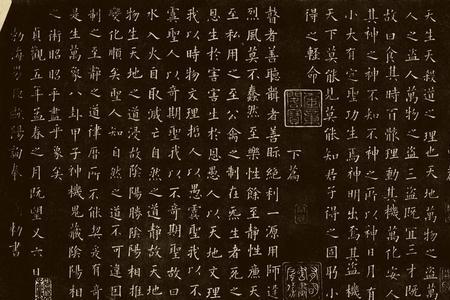 天生天殺道之理也天地萬物之盜
人之盜人萬物之盜三盜既宜三才既
故曰食其時百骸理動其機萬化安人
其神之神不知不神之所以神日月有
小大有定聖功生焉神明出焉其盜機
天下莫能見莫能知君子得之固躬小
得之輕命
下篇
瞽者善聽聾者善眎絕利一源用師
烈風莫不蠢然至樂性餘至靜性廉天
至私用之至公禽之制在炁生者死之
恩生於害害生於恩愚人以天地文理
我以時物文理哲人以愚虞聖我以不
虞聖人以奇期聖我以不奇期聖故曰
水入火自取滅亡自然之道靜故天地
物生天地之道浸故陰陽勝陰陽相推
變化順矣聖人知自然之道不可違因
制之至靜之道律曆所不能契爰有奇
是生萬象八卦甲子神機鬼藏陰陽相
之術昭昭乎盡乎象矣
貞觀五年孟春之月既望又六日
勃海歐陽詢奉 勅書